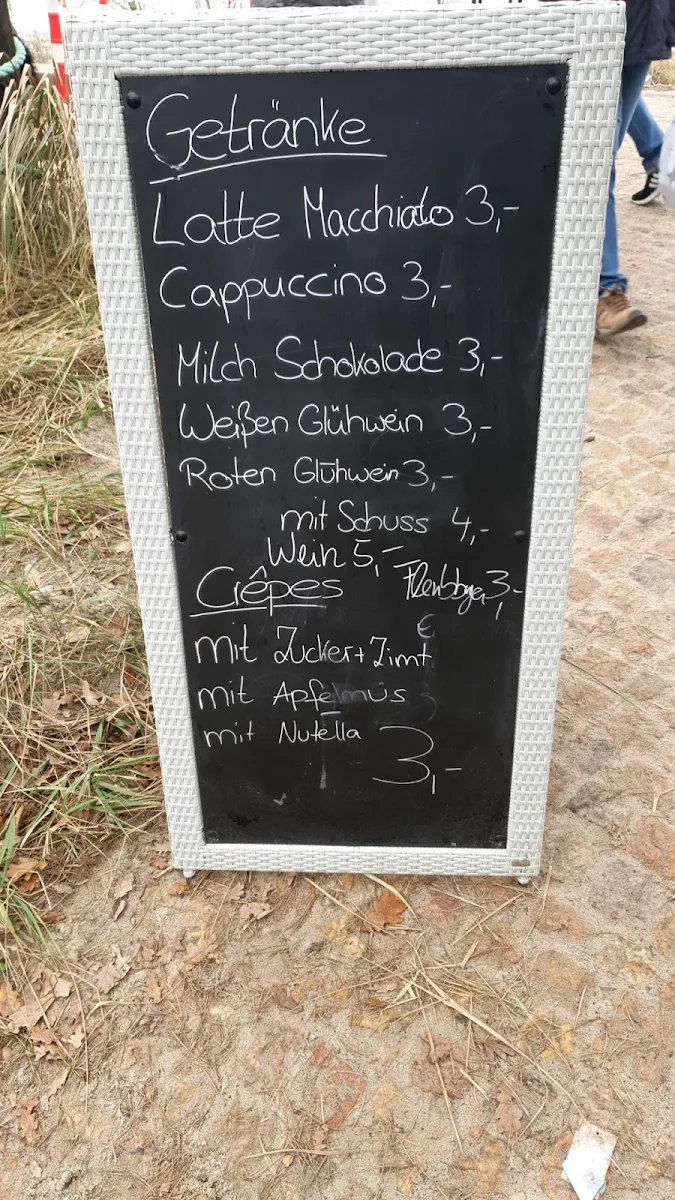 Getränke
Latte Macchiato 3,-
Cappuccino 3,-
Milch Schokolade 3,-
Weißen Glühwein 3,-
Roten Glühwein 3,-
mit Schuss 4,-
Wein 5,-
Crêpes
3,-
€
mit Zucker + Zimt
mit Apfelmus
mit Nutella
3,-